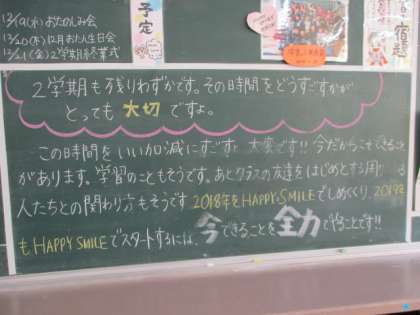 12/19(水)おたのしみ会
12/20(木)12月おたん生日会
12/21(金)2学期終業式
予定
2学期も残りわずかです。その時間をどうすごすかが
とっても大切ですよ。
この時間をいい加減にすごす 大変です!!今だからこそできること
があります。学習のこともそうです。あとクラスの友達をはじめとする周り
人たちとの関わり方もそうです 2018年をHAPPY SMILEでしめくくり、2019年
もHAPPY SMILEでスタートするには、今できることを全力でやることです!!